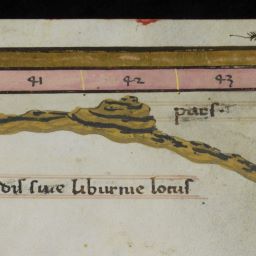 41 42 43
pars
dis siue liburnie locus